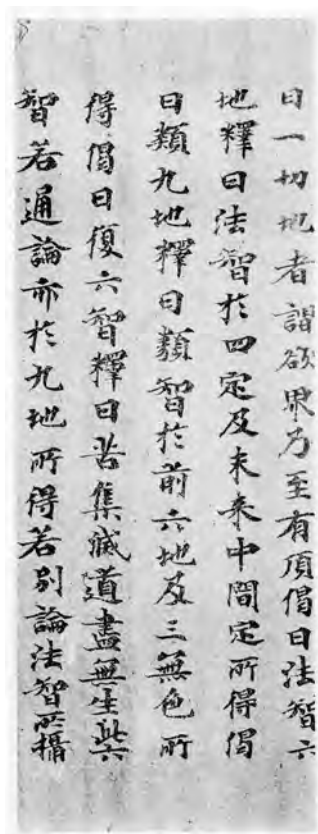 曰一切地者謂欲界乃至有頂偈曰法智六
地釋曰法智於四定及未来中間定所得偈
曰類九地釋曰類智於前六地及三無色所
得偈曰復六智釋曰苦集滅道盡無生此六
智若通論亦於九地所得若別論法智所攝